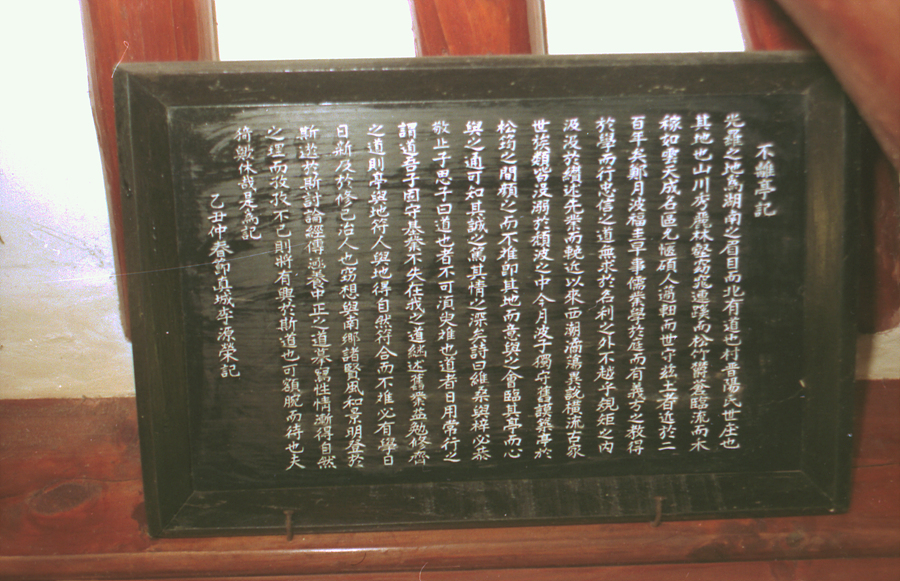 不離亭記
光羅之地爲湖南之眉目而北有道也村晋陽氏世庄也
其地也山川秀麗林壑窈窕連蹊而松竹欝蒼臨流而禾
稼如雲天成名區先偃碩人過軸而世守玆土者近於二
百年矣鄭月波福圭早事儒業學於庭而有義方之敎得
於學而行忠信之道無求於名利之外不越乎規矩之內
汲汲於纘述先業而輓近以來西潮滔蕩異說橫流古家
世族類皆沒溺於頹波之中今月波子獨守舊謨築亭於
松筠之間額之而不離卽其地而意與之會臨其亭而心
與之通可知其誠之篤其情之深矣詩曰維桑與梓必恭
敬止子思子曰道也者不可須臾離也道者日用常行之
謂道吾子固守基業不失在我之道繼述舊業益勉修齊
之道則亭與地符人與地得自然符合而不離必有學日
日新及於修己治人也窃想與南鄕諸賢風和景明登於
斯遊於斯討論經傳涵養中正之道摹寫性情漸得自然
之理而孜孜不已則將有興於斯道也可額腕而待也夫
猗歟休哉是爲記
乙丑仲春節眞城李源榮記